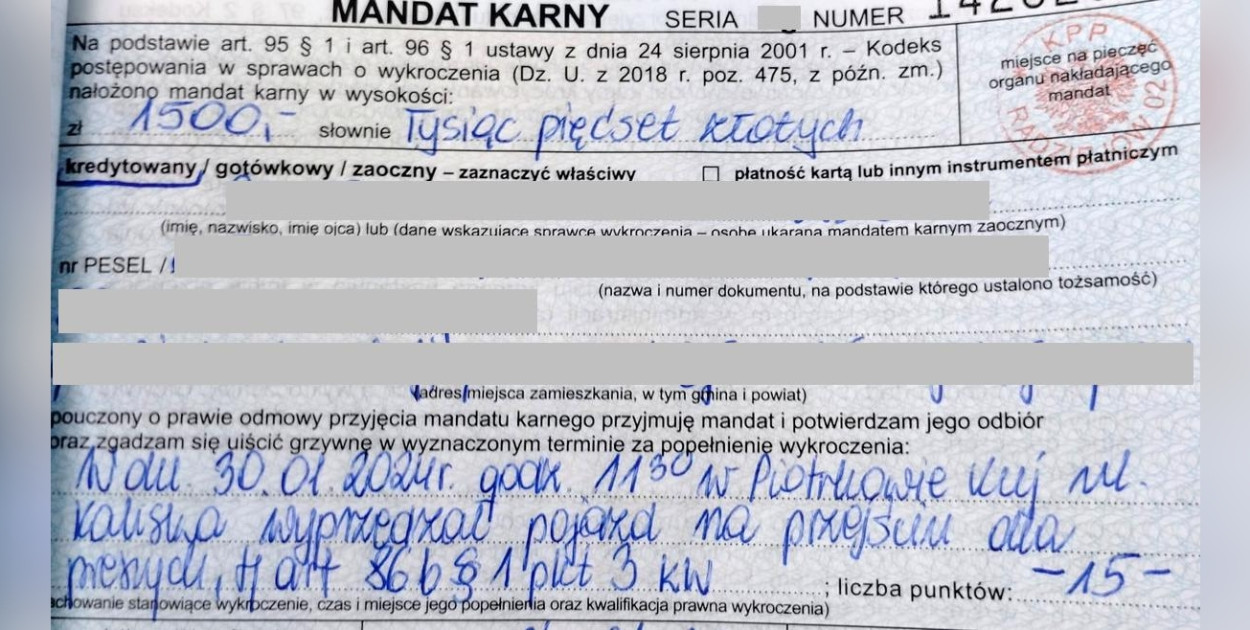 MANDAT KARNY SERIA NUMER
Na podstawie art. 95 § 1 i art. 96 § 1 ustawy z dnia 24 sierpnia 2001 r. – Kodeks
postępowania w sprawach o wykroczenia (Dz. U. z 2018 r. poz. 475, z późn. zm.)
nałożono mandat karny w wysokości:
zł 1500,- słownie Tysiąc pięćset złotych
KPP
miejsce na pieczęć
organu nakładającego
mandat
RADZIEJOW 02
kredytowany / gotówkowy / zaoczny – zaznaczyć właściwy
płatność kartą lub innym instrumentem płatniczym
(imię, nazwisko, imię ojca) lub (dane wskazujące sprawcę wykroczenia – osobę ukaraną mandatem karnym zaocznym)
nr PESEL /
(nazwa i numer dokumentu, na podstawie którego ustalono tożsamość)
(adres miejsca zamieszkania, w tym gmina i powiat)
pouczony o prawie odmowy przyjęcia mandatu karnego przyjmuję mandat i potwierdzam jego odbiór
oraz zgadzam się uiścić grzywnę w wyznaczonym terminie za popełnienie wykroczenia:
W dn. 30.01.2024r. godz. 11³⁰ w Piotrkowie Kuj ul.
Kaliska wyprzedzał pojazd na przejściu dla
pieszych, tj art 86b § 1 pkt 3 KW ; liczba punktów: -15-
zachowanie stanowiące wykroczenie, czas i miejsce jego popełnienia oraz kwalifikacja prawna wykroczenia)